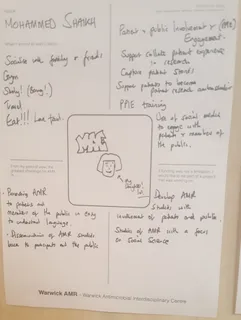 MOHAMMED SHAIKH
Socialise with family & friends
Gym
Study! (boring!)
Travel
Eat!!! Love food.
Patient & public Involvement & (PPIE)
Engagement.
Support collate patient experience
in research
Capture patient stories
Support patients to become
patient research
PPIE training
Use of social media
to engage with
patients & members of
the public.
my
daughter!
Promoting AMR
to patients and
members of the public in easy
to understand language.
• Dissemination of AMR studies
back to participants and the public
Develop AMR
Studies with
involvement of patients and public
Studies of AMR with a focus
on Social Science
Warwick AMR - Warwick Antimicrobial Interdisciplinary Centre